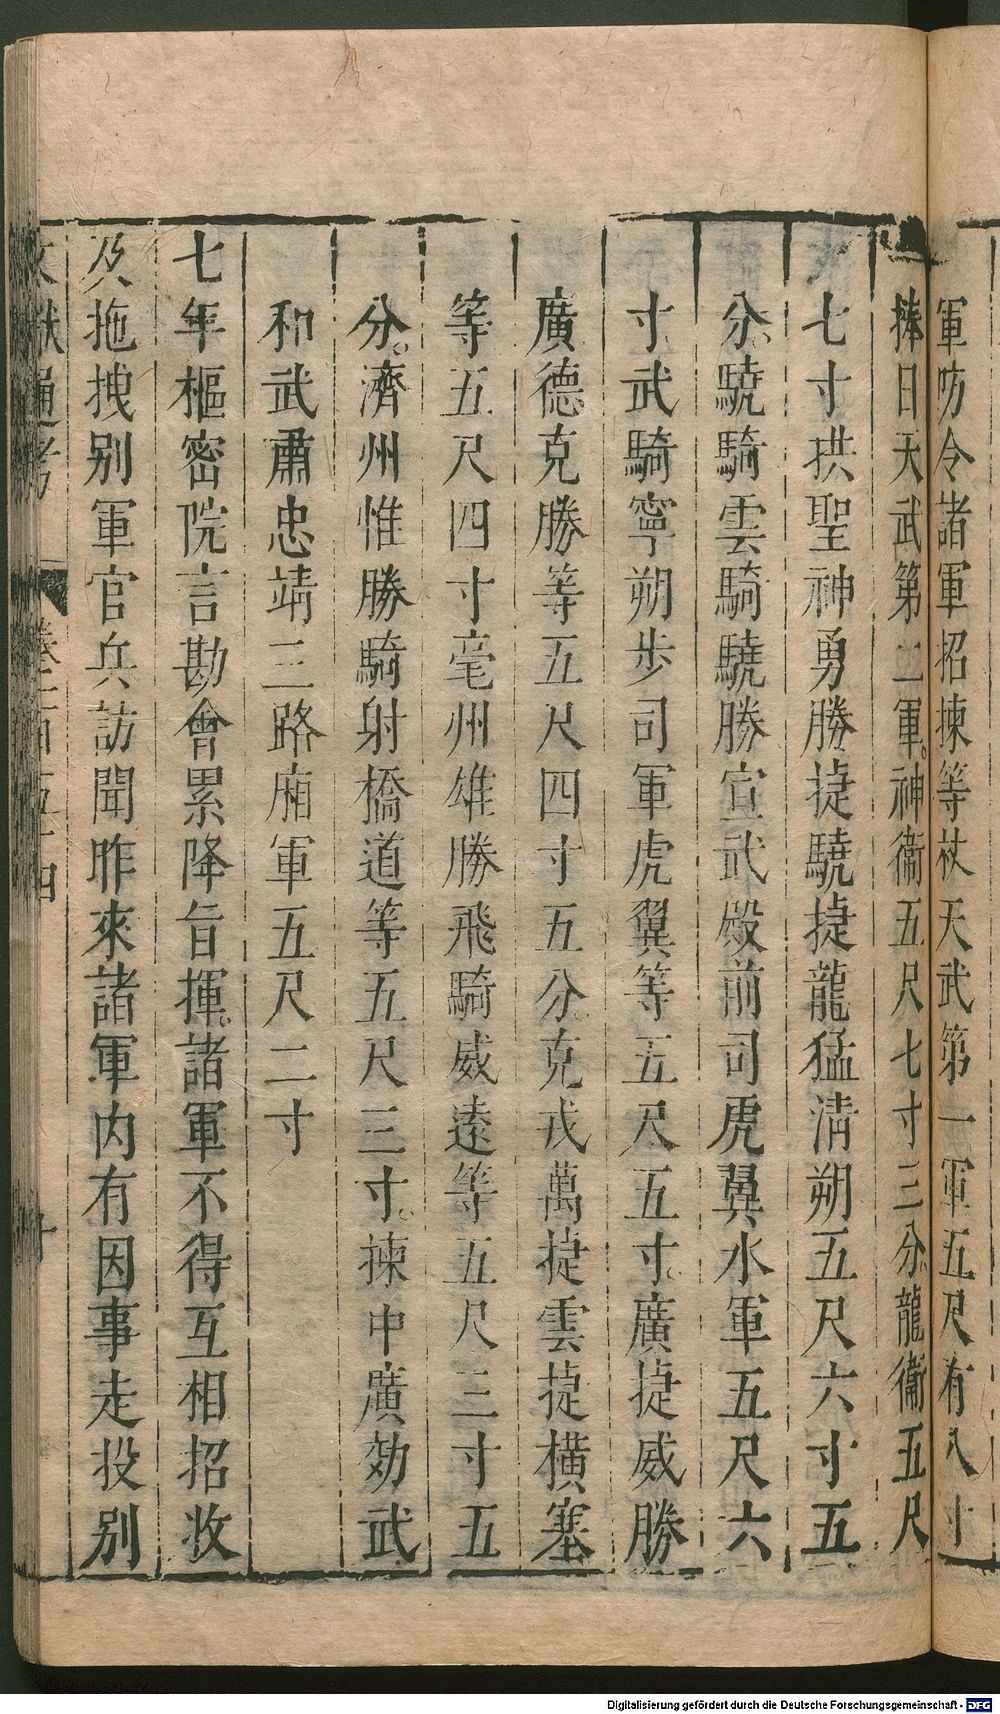 軍昉令諸軍招揀等杖天武第一軍五尺有八寸
捧日天武第二軍。神衞五尺七寸三分。龍衞五尺
七寸拱聖神勇勝捷驍捷龍猛淸朔五尺六寸五
分。驍騎雲騎驍勝宣武殿前司虎翼水軍五尺六
寸武騎寧朔步司軍虎翼等五尺五寸。廣捷威勝
廣德克勝等五尺四寸五分克戎萬捷雲捷横塞
等五尺四寸亳州雄勝飛騎威遠等五尺三寸五
分。濟州惟勝騎射橋道等五尺三寸。揀中廣効武
和武肅忠靖三路廂軍五尺二寸
七年樞密院言勘會累降旨揮。諸軍不得互相招收
及拖拽别軍官兵訪聞昨來諸軍内有因事走投别
文獻通考 卷一百五十四 十
Digitalisierung gefördert durch die Deutsche Forschungsgemeinschaft - DFG